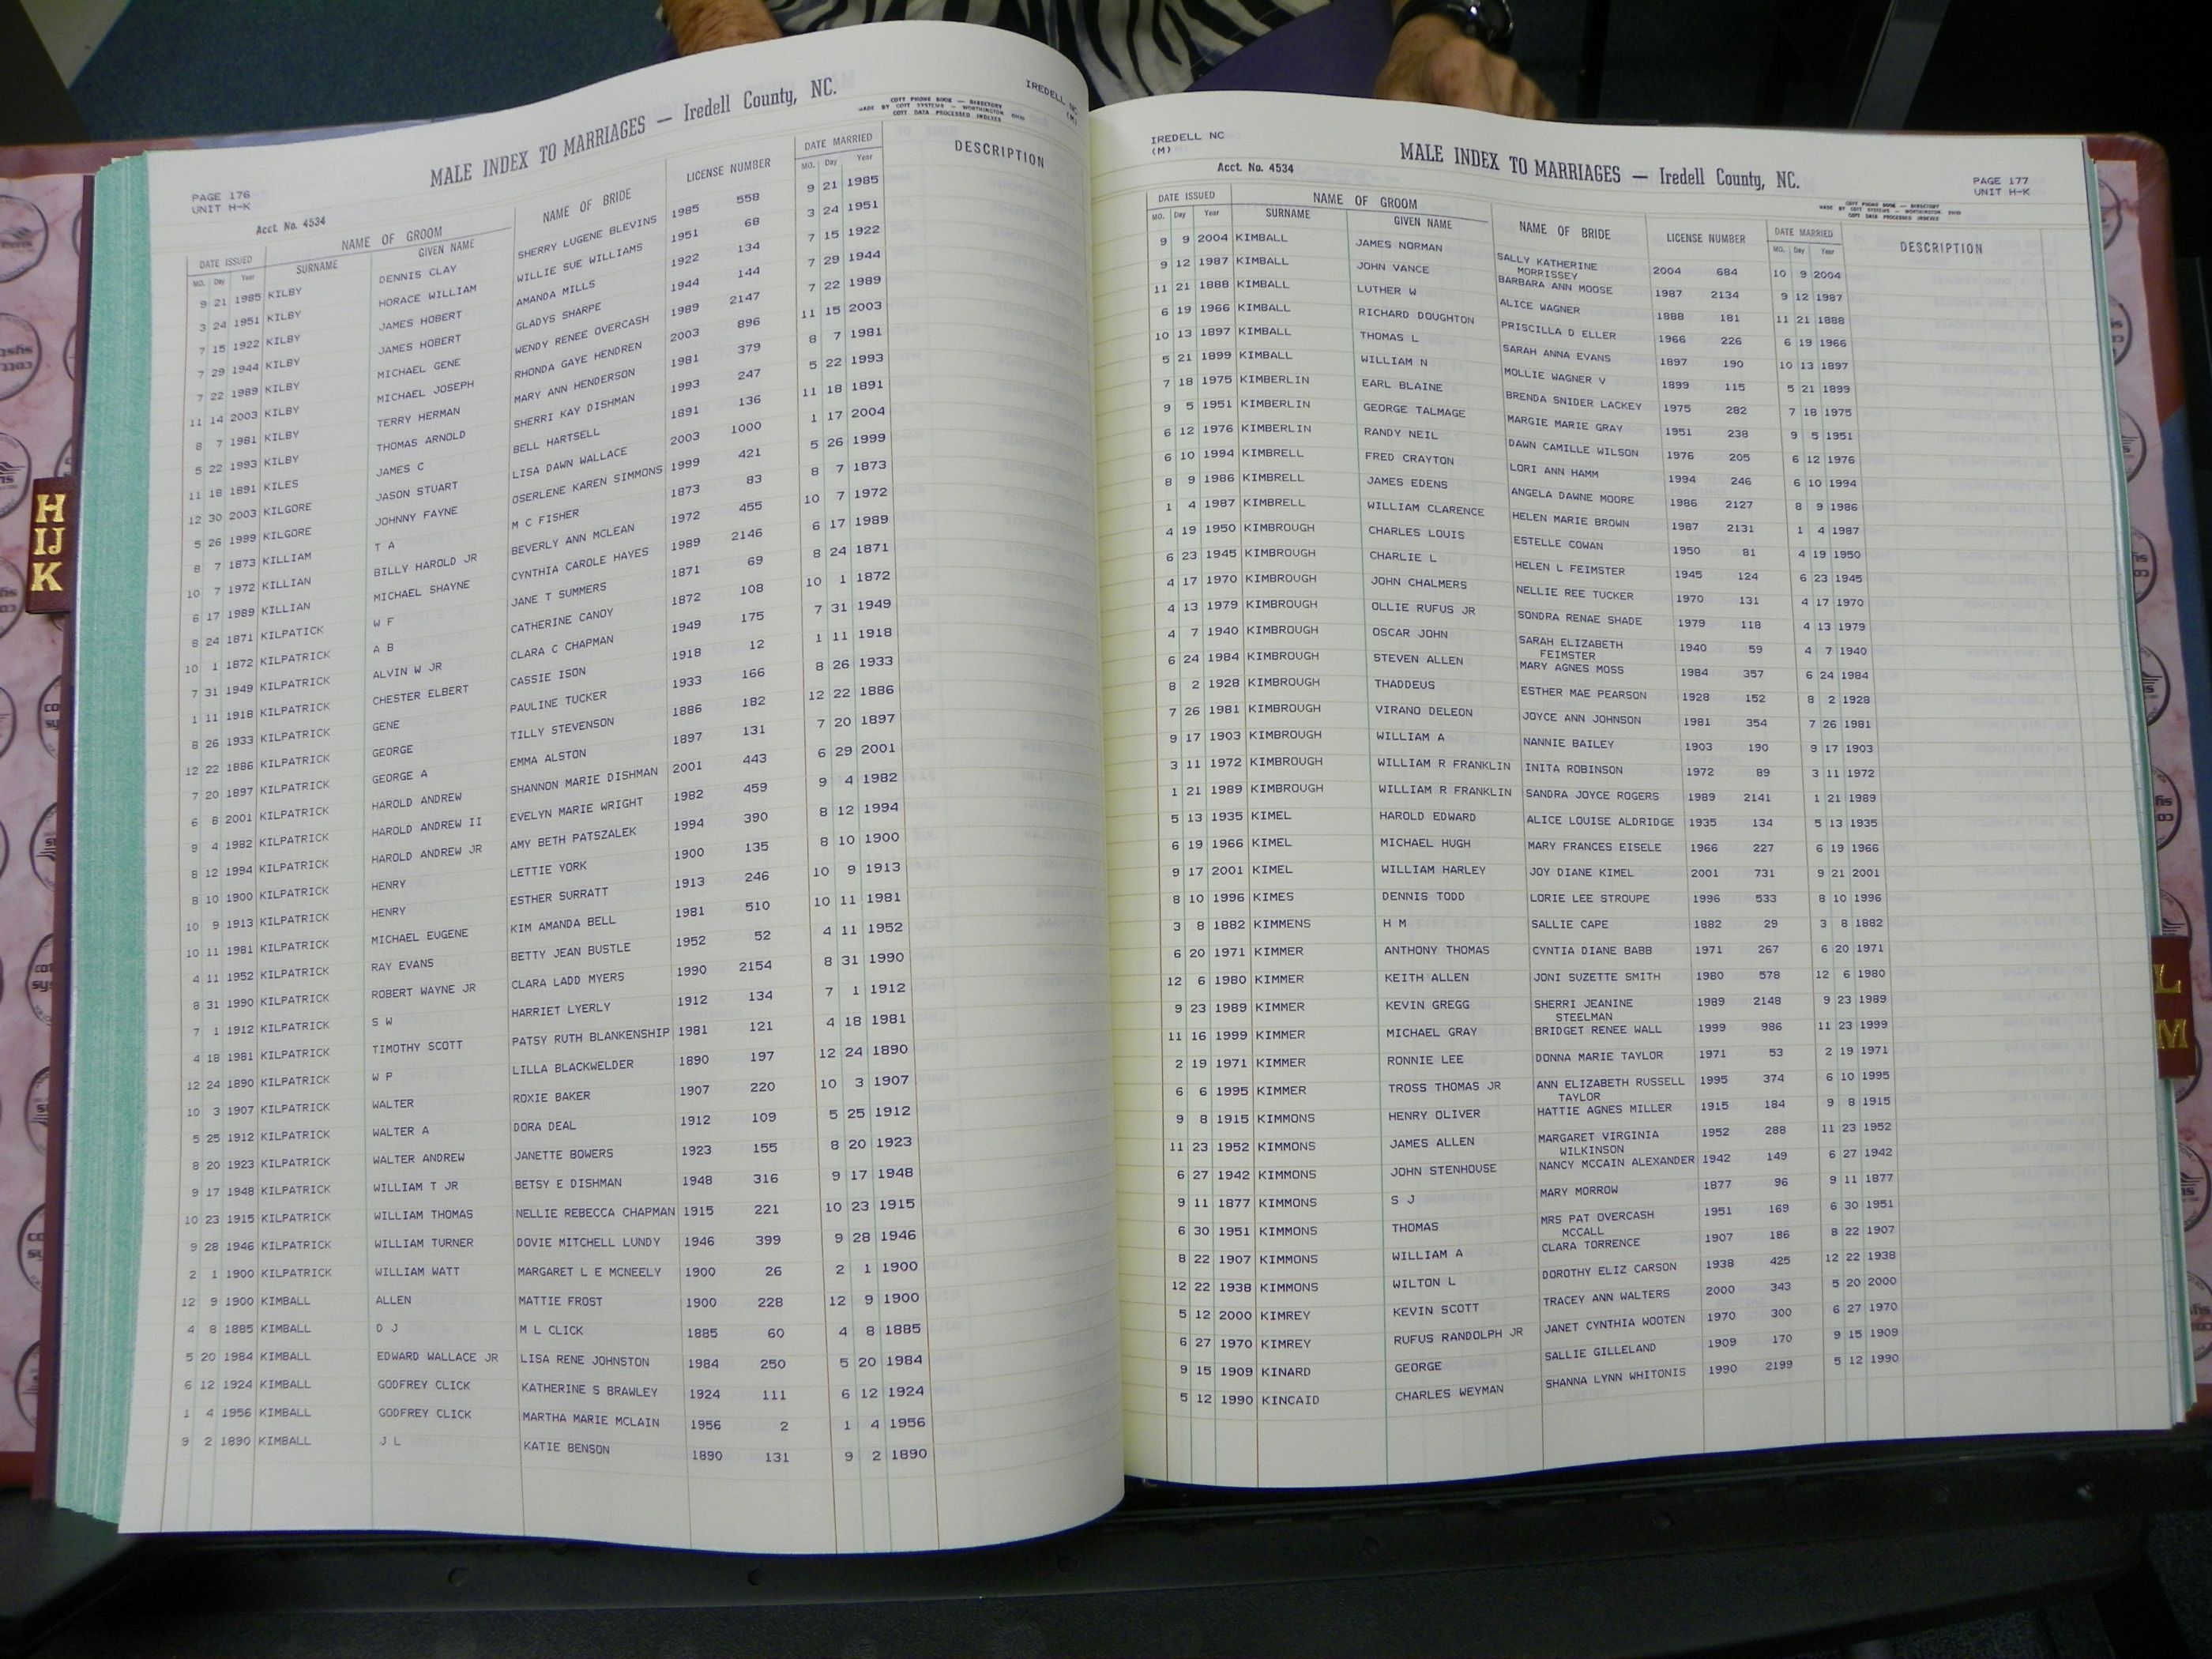 MALE INDEX TO MARRIAGES — Iredell County, NC.
PAGE 176
UNIT H-K
Acct. No. 4534
IREDELL NC
(M)
COTT PHONE BOOK — DIRECTORY
MADE BY COTT SYSTEMS — WORTHINGTON, OHIO
COTT DATA PROCESSED INDEXES
DATE ISSUED NAME OF GROOM NAME OF BRIDE LICENSE NUMBER DATE MARRIED DESCRIPTION
MO. Day Year SURNAME GIVEN NAME MO. Day Year
9 21 1985 KILBY DENNIS CLAY SHERRY LUGENE BLEVINS 1985 558 9 21 1985
3 24 1951 KILBY HORACE WILLIAM WILLIE SUE WILLIAMS 1951 68 3 24 1951
7 15 1922 KILBY JAMES HOBERT AMANDA MILLS 1922 134 7 15 1922
7 29 1944 KILBY JAMES HOBERT GLADYS SHARPE 1944 144 7 29 1944
7 22 1989 KILBY MICHAEL GENE WENDY RENEE OVERCASH 1989 2147 7 22 1989
11 14 2003 KILBY MICHAEL JOSEPH RHONDA GAYE HENDREN 2003 896 11 15 2003
8 7 1981 KILBY TERRY HERMAN MARY ANN HENDERSON 1981 379 8 7 1981
5 22 1993 KILBY THOMAS ARNOLD SHERRI KAY DISHMAN 1993 247 5 22 1993
11 18 1891 KILES JAMES C BELL HARTSELL 1891 136 11 18 1891
12 30 2003 KILGORE JASON STUART LISA DAWN WALLACE 2003 1000 1 17 2004
5 26 1999 KILGORE JOHNNY FAYNE OSERLENE KAREN SIMMONS 1999 421 5 26 1999
8 7 1873 KILLIAM T A M C FISHER 1873 83 8 7 1873
10 7 1972 KILLIAN BILLY HAROLD JR BEVERLY ANN MCLEAN 1972 455 10 7 1972
6 17 1989 KILLIAN MICHAEL SHAYNE CYNTHIA CAROLE HAYES 1989 2146 6 17 1989
8 24 1871 KILPATICK W F JANE T SUMMERS 1871 69 8 24 1871
10 1 1872 KILPATRICK A B CATHERINE CANDY 1872 108 10 1 1872
7 31 1949 KILPATRICK ALVIN W JR CLARA C CHAPMAN 1949 175 7 31 1949
1 11 1918 KILPATRICK CHESTER ELBERT CASSIE ISON 1918 12 1 11 1918
8 26 1933 KILPATRICK GENE PAULINE TUCKER 1933 166 8 26 1933
12 22 1886 KILPATRICK GEORGE TILLY STEVENSON 1886 182 12 22 1886
7 20 1897 KILPATRICK GEORGE A EMMA ALSTON 1897 131 7 20 1897
6 8 2001 KILPATRICK HAROLD ANDREW SHANNON MARIE DISHMAN 2001 443 6 29 2001
9 4 1982 KILPATRICK HAROLD ANDREW II EVELYN MARIE WRIGHT 1982 459 9 4 1982
8 12 1994 KILPATRICK HAROLD ANDREW JR AMY BETH PATSZALEK 1994 390 8 12 1994
8 10 1900 KILPATRICK HENRY LETTIE YORK 1900 135 8 10 1900
10 9 1913 KILPATRICK HENRY ESTHER SURRATT 1913 246 10 9 1913
10 11 1981 KILPATRICK MICHAEL EUGENE KIM AMANDA BELL 1981 510 10 11 1981
4 11 1952 KILPATRICK RAY EVANS BETTY JEAN BUSTLE 1952 52 4 11 1952
8 31 1990 KILPATRICK ROBERT WAYNE JR CLARA LADD MYERS 1990 2154 8 31 1990
7 1 1912 KILPATRICK S W HARRIET LYERLY 1912 134 7 1 1912
4 18 1981 KILPATRICK TIMOTHY SCOTT PATSY RUTH BLANKENSHIP 1981 121 4 18 1981
12 24 1890 KILPATRICK W P LILLA BLACKWELDER 1890 197 12 24 1890
10 3 1907 KILPATRICK WALTER ROXIE BAKER 1907 220 10 3 1907
5 25 1912 KILPATRICK WALTER A DORA DEAL 1912 109 5 25 1912
8 20 1923 KILPATRICK WALTER ANDREW JANETTE BOWERS 1923 155 8 20 1923
9 17 1948 KILPATRICK WILLIAM T JR BETSY E DISHMAN 1948 316 9 17 1948
10 23 1915 KILPATRICK WILLIAM THOMAS NELLIE REBECCA CHAPMAN 1915 221 10 23 1915
9 28 1946 KILPATRICK WILLIAM TURNER DOVIE MITCHELL LUNDY 1946 399 9 28 1946
2 1 1900 KILPATRICK WILLIAM WATT MARGARET L E MCNEELY 1900 26 2 1 1900
12 9 1900 KIMBALL ALLEN MATTIE FROST 1900 228 12 9 1900
4 8 1885 KIMBALL D J M L CLICK 1885 60 4 8 1885
5 20 1984 KIMBALL EDWARD WALLACE JR LISA RENE JOHNSTON 1984 250 5 20 1984
6 12 1924 KIMBALL GODFREY CLICK KATHERINE S BRAWLEY 1924 111 6 12 1924
1 4 1956 KIMBALL GODFREY CLICK MARTHA MARIE MCLAIN 1956 2 1 4 1956
9 2 1890 KIMBALL J L KATIE BENSON 1890 131 9 2 1890
IREDELL NC
(M)
Acct. No. 4534
MALE INDEX TO MARRIAGES — Iredell County, NC.
PAGE 177
UNIT H-K
COTT PHONE BOOK — DIRECTORY
MADE BY COTT SYSTEMS — WORTHINGTON, OHIO
COTT DATA PROCESSED INDEXES
DATE ISSUED NAME OF GROOM NAME OF BRIDE LICENSE NUMBER DATE MARRIED DESCRIPTION
MO. Day Year SURNAME GIVEN NAME MO. Day Year
9 9 2004 KIMBALL JAMES NORMAN SALLY KATHERINE 2004 684 10 9 2004
MORRISSEY
9 12 1987 KIMBALL JOHN VANCE BARBARA ANN MOOSE 1987 2134 9 12 1987
11 21 1888 KIMBALL LUTHER W ALICE WAGNER 1888 181 11 21 1888
6 19 1966 KIMBALL RICHARD DOUGHTON PRISCILLA D ELLER 1966 226 6 19 1966
10 13 1897 KIMBALL THOMAS L SARAH ANNA EVANS 1897 190 10 13 1897
5 21 1899 KIMBALL WILLIAM N MOLLIE WAGNER V 1899 115 5 21 1899
7 18 1975 KIMBERLIN EARL BLAINE BRENDA SNIDER LACKEY 1975 282 7 18 1975
9 5 1951 KIMBERLIN GEORGE TALMAGE MARGIE MARIE GRAY 1951 238 9 5 1951
6 12 1976 KIMBERLIN RANDY NEIL DAWN CAMILLE WILSON 1976 205 6 12 1976
6 10 1994 KIMBRELL FRED CRAYTON LORI ANN HAMM 1994 246 6 10 1994
8 9 1986 KIMBRELL JAMES EDENS ANGELA DAWNE MOORE 1986 2127 8 9 1986
1 4 1987 KIMBRELL WILLIAM CLARENCE HELEN MARIE BROWN 1987 2131 1 4 1987
4 19 1950 KIMBROUGH CHARLES LOUIS ESTELLE COWAN 1950 81 4 19 1950
6 23 1945 KIMBROUGH CHARLIE L HELEN L FEIMSTER 1945 124 6 23 1945
4 17 1970 KIMBROUGH JOHN CHALMERS NELLIE REE TUCKER 1970 131 4 17 1970
4 13 1979 KIMBROUGH OLLIE RUFUS JR SONDRA RENAE SHADE 1979 118 4 13 1979
4 7 1940 KIMBROUGH OSCAR JOHN SARAH ELIZABETH 1940 59 4 7 1940
FEIMSTER
6 24 1984 KIMBROUGH STEVEN ALLEN MARY AGNES MOSS 1984 357 6 24 1984
8 2 1928 KIMBROUGH THADDEUS ESTHER MAE PEARSON 1928 152 8 2 1928
7 26 1981 KIMBROUGH VIRANO DELEON JOYCE ANN JOHNSON 1981 354 7 26 1981
9 17 1903 KIMBROUGH WILLIAM A NANNIE BAILEY 1903 190 9 17 1903
3 11 1972 KIMBROUGH WILLIAM R FRANKLIN INITA ROBINSON 1972 89 3 11 1972
1 21 1989 KIMBROUGH WILLIAM R FRANKLIN SANDRA JOYCE ROGERS 1989 2141 1 21 1989
5 13 1935 KIMEL HAROLD EDWARD ALICE LOUISE ALDRIDGE 1935 134 5 13 1935
6 19 1966 KIMEL MICHAEL HUGH MARY FRANCES EISELE 1966 227 6 19 1966
9 17 2001 KIMEL WILLIAM HARLEY JOY DIANE KIMEL 2001 731 9 21 2001
8 10 1996 KIMES DENNIS TODD LORIE LEE STROUPE 1996 533 8 10 1996
3 8 1882 KIMMENS H M SALLIE CAPE 1882 29 3 8 1882
6 20 1971 KIMMER ANTHONY THOMAS CYNTIA DIANE BABB 1971 267 6 20 1971
12 6 1980 KIMMER KEITH ALLEN JONI SUZETTE SMITH 1980 578 12 6 1980
9 23 1989 KIMMER KEVIN GREGG SHERRI JEANINE 1989 2148 9 23 1989
STEELMAN
11 16 1999 KIMMER MICHAEL GRAY BRIDGET RENEE WALL 1999 986 11 23 1999
2 19 1971 KIMMER RONNIE LEE DONNA MARIE TAYLOR 1971 53 2 19 1971
6 6 1995 KIMMER TROSS THOMAS JR ANN ELIZABETH RUSSELL 1995 374 6 10 1995
TAYLOR
9 8 1915 KIMMONS HENRY OLIVER HATTIE AGNES MILLER 1915 184 9 8 1915
11 23 1952 KIMMONS JAMES ALLEN MARGARET VIRGINIA 1952 288 11 23 1952
WILKINSON
6 27 1942 KIMMONS JOHN STENHOUSE NANCY MCCAIN ALEXANDER 1942 149 6 27 1942
9 11 1877 KIMMONS S J MARY MORROW 1877 96 9 11 1877
6 30 1951 KIMMONS THOMAS MRS PAT OVERCASH 1951 169 6 30 1951
MCCALL
8 22 1907 KIMMONS WILLIAM A CLARA TORRENCE 1907 186 8 22 1907
12 22 1938 KIMMONS WILTON L DOROTHY ELIZ CARSON 1938 425 12 22 1938
5 12 2000 KIMREY KEVIN SCOTT TRACEY ANN WALTERS 2000 343 5 20 2000
6 27 1970 KIMREY RUFUS RANDOLPH JR JANET CYNTHIA WOOTEN 1970 300 6 27 1970
9 15 1909 KINARD GEORGE SALLIE GILLELAND 1909 170 9 15 1909
5 12 1990 KINCAID CHARLES WEYMAN SHANNA LYNN WHITONIS 1990 2199 5 12 1990
H
IJ
K
L
M